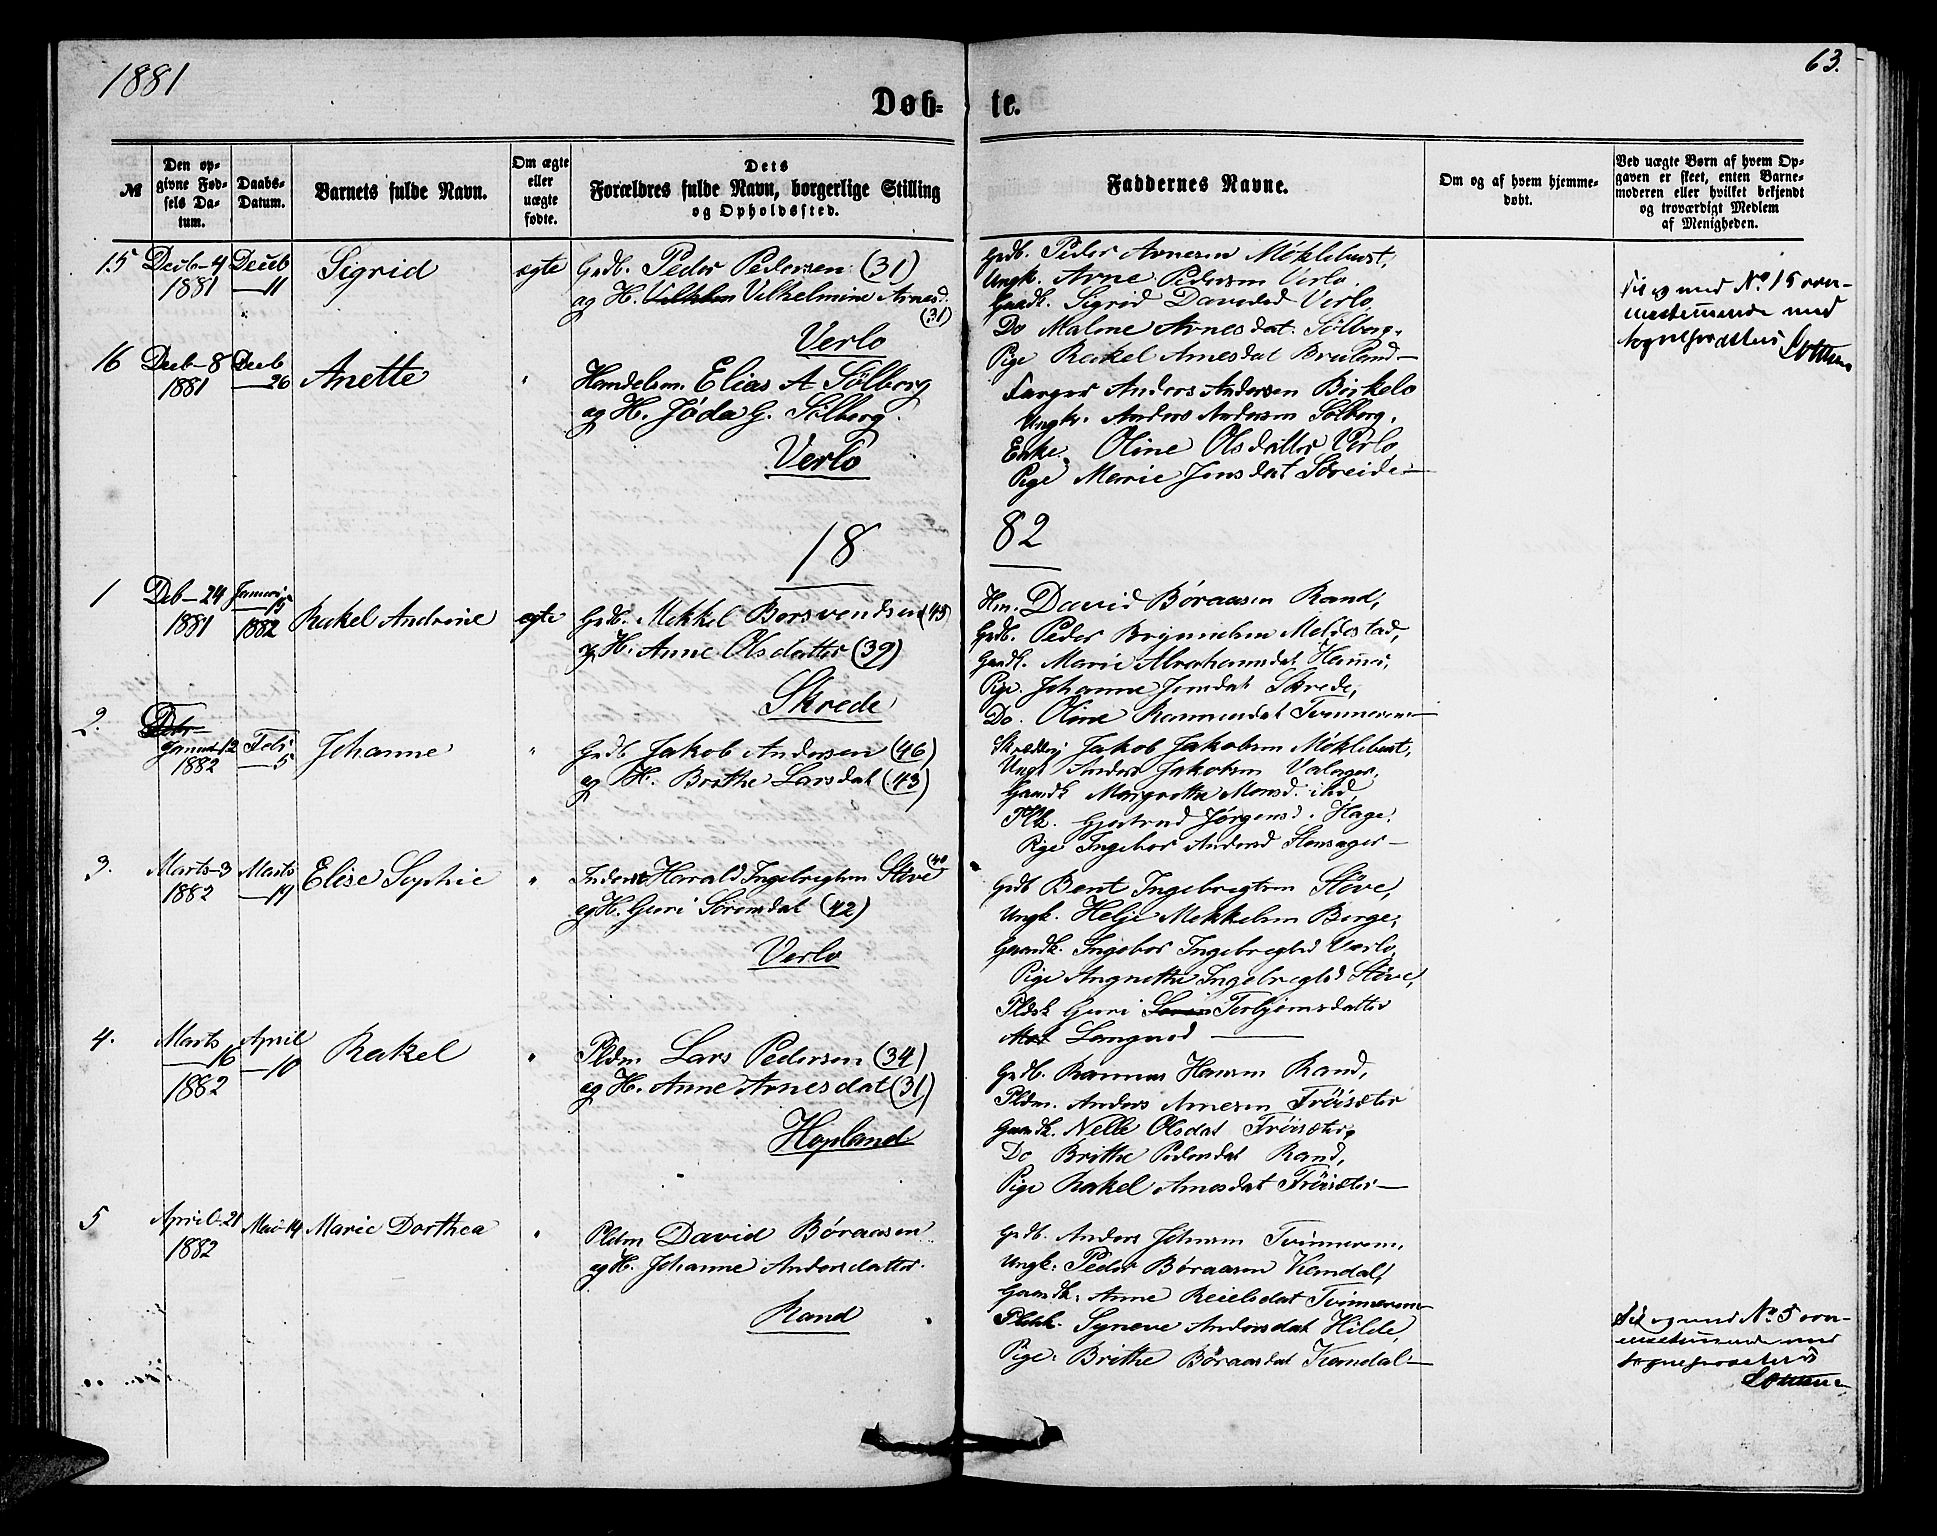 1881
63.
Døb-
te.
№
Den op-
givne Fød-
sels Da-
tum.
Daabs-
Datum.
Barnets fulde Navn.
Om ægte
eller
uægte
fødte.
Dets
Forældres fulde Navn, borgerlige Stilling
og Opholdssted.
Faddernes Navne.
Om og af hvem hjemme-
døbt.
Ved uægte Børn af hvem Op-
gaven er skeet, enten Barne-
moderen eller hvilket bekjendt
og troværdigt Medlem
af Menigheden.
15 Decb-4 Decb Sigrid ægte Grdb. Peder Pedersen (31)
1881 —11 og H. Vilhelmine Arnesd.
(31)
Verlo
Grdb. Peder Arnesen Møklebust,
Ungk. Arne Pedersen Verlo.
Gaardk. Sigrid Davidsd Verlo
Do Malene Arnesdat. Sølberg.
Pige Rakel Arnesdat Bruland—
Til og med No 15 over-
ensstemmende med
16 Decb-8 Decb Anette " Handelsm. Elias A Sölberg
1881 —26 og H. Jøda G. Sölberg.
Verlo
Farver Anders Andersen Birkelo
Ungk. Anders Andersen Sölberg.
Enke Oline Olsdatter Verlo
Pige Marie Jensdat Skreide—
18
82
1 Deb-24 Januar Rakel Andrine ægte Grdb. Mekkel Borsvendsen (45)
—15
1881 1882 og H. Anne Olsdatter (39)
Skrede
Hm. David Børaasen Rand,
Grdb. Peder Brynnelsen Meldestad,
Gaardk. Marie Abrahamsdat
Pige. Johanne Jensdat Skrede,
Do. Oline Rasmusdat Tvinnerem—
2. Januar-12 Feb Johanne " Grdb Jakob Andersen (46)
1882 —5 og H. Brithe Larsdat (43)
Jakob Jakobsen Møklebust,
Ungk Anders Jakobsen
Gaardk Margrethe Monsd. ibd,
Plk. Gjertrud Jørgensd. Hage.
Pige Ingebor Andersd
3. Marts-3 Marts Elise Sophie " Harald Ingebregtsen Støve (40
1882 —19 og H. Guri Sørensdat (42)
Verlo
Grdb Bent Ingebregtsen Støve,
Ungk. Helje Mekkelsen Berge,
Gaardk. Ingebor Ingebregtsd Verlo,
Pige Angnethe Ingebregtsd Støve,
Pldsk Guri Torbjørnsdatter
Langesed —
4. Marts April Rakel " Pldm Lars Pedersen (34)
—16 —10
1882 og H. Anne Arnesdat (31)
Hopland
Grdb. Rasmus Hansen Rand,
Pldm. Anders Arnesen Frøisæter
Gaardk. Nelle Olsdat Frøisæter,
Do Brithe Pedersdat Rand,
Pige Rakel Arnesdat Frøisæter—
5 April-21 Mai-14 Marie Dorthea " Pldm David Børaasen
1882 og H. Johanne Andersdatter.
Rand
Grdb. Anders Johnsen Tvinnerem,
Ungk. Peder Børaasen Kandal,
Gaardk. Anne Reielsdat Tvinnerem
Pldsk. Syneve Andersdat Hilde,
Pige. Brithe Børaasdat Kandal—
Til og med No 5 over-
ensstemmende med